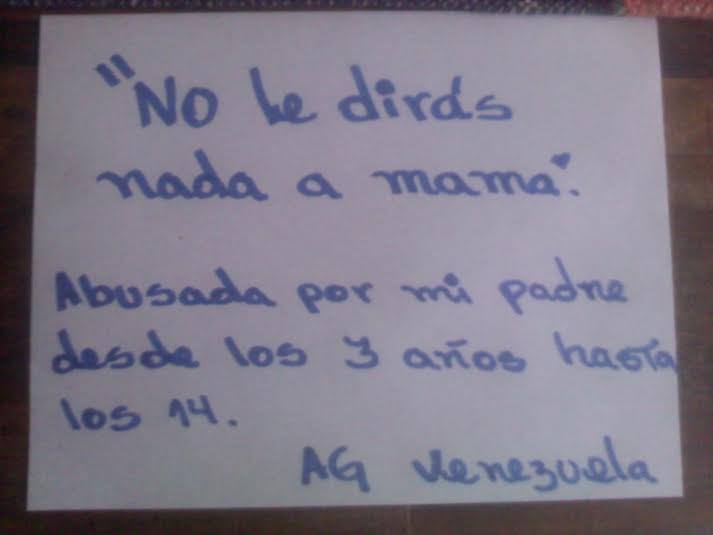 "No le dirás
nada a mama".
Abusada por mi padre
desde los 3 años hasta
los 14.
AG Venezuela